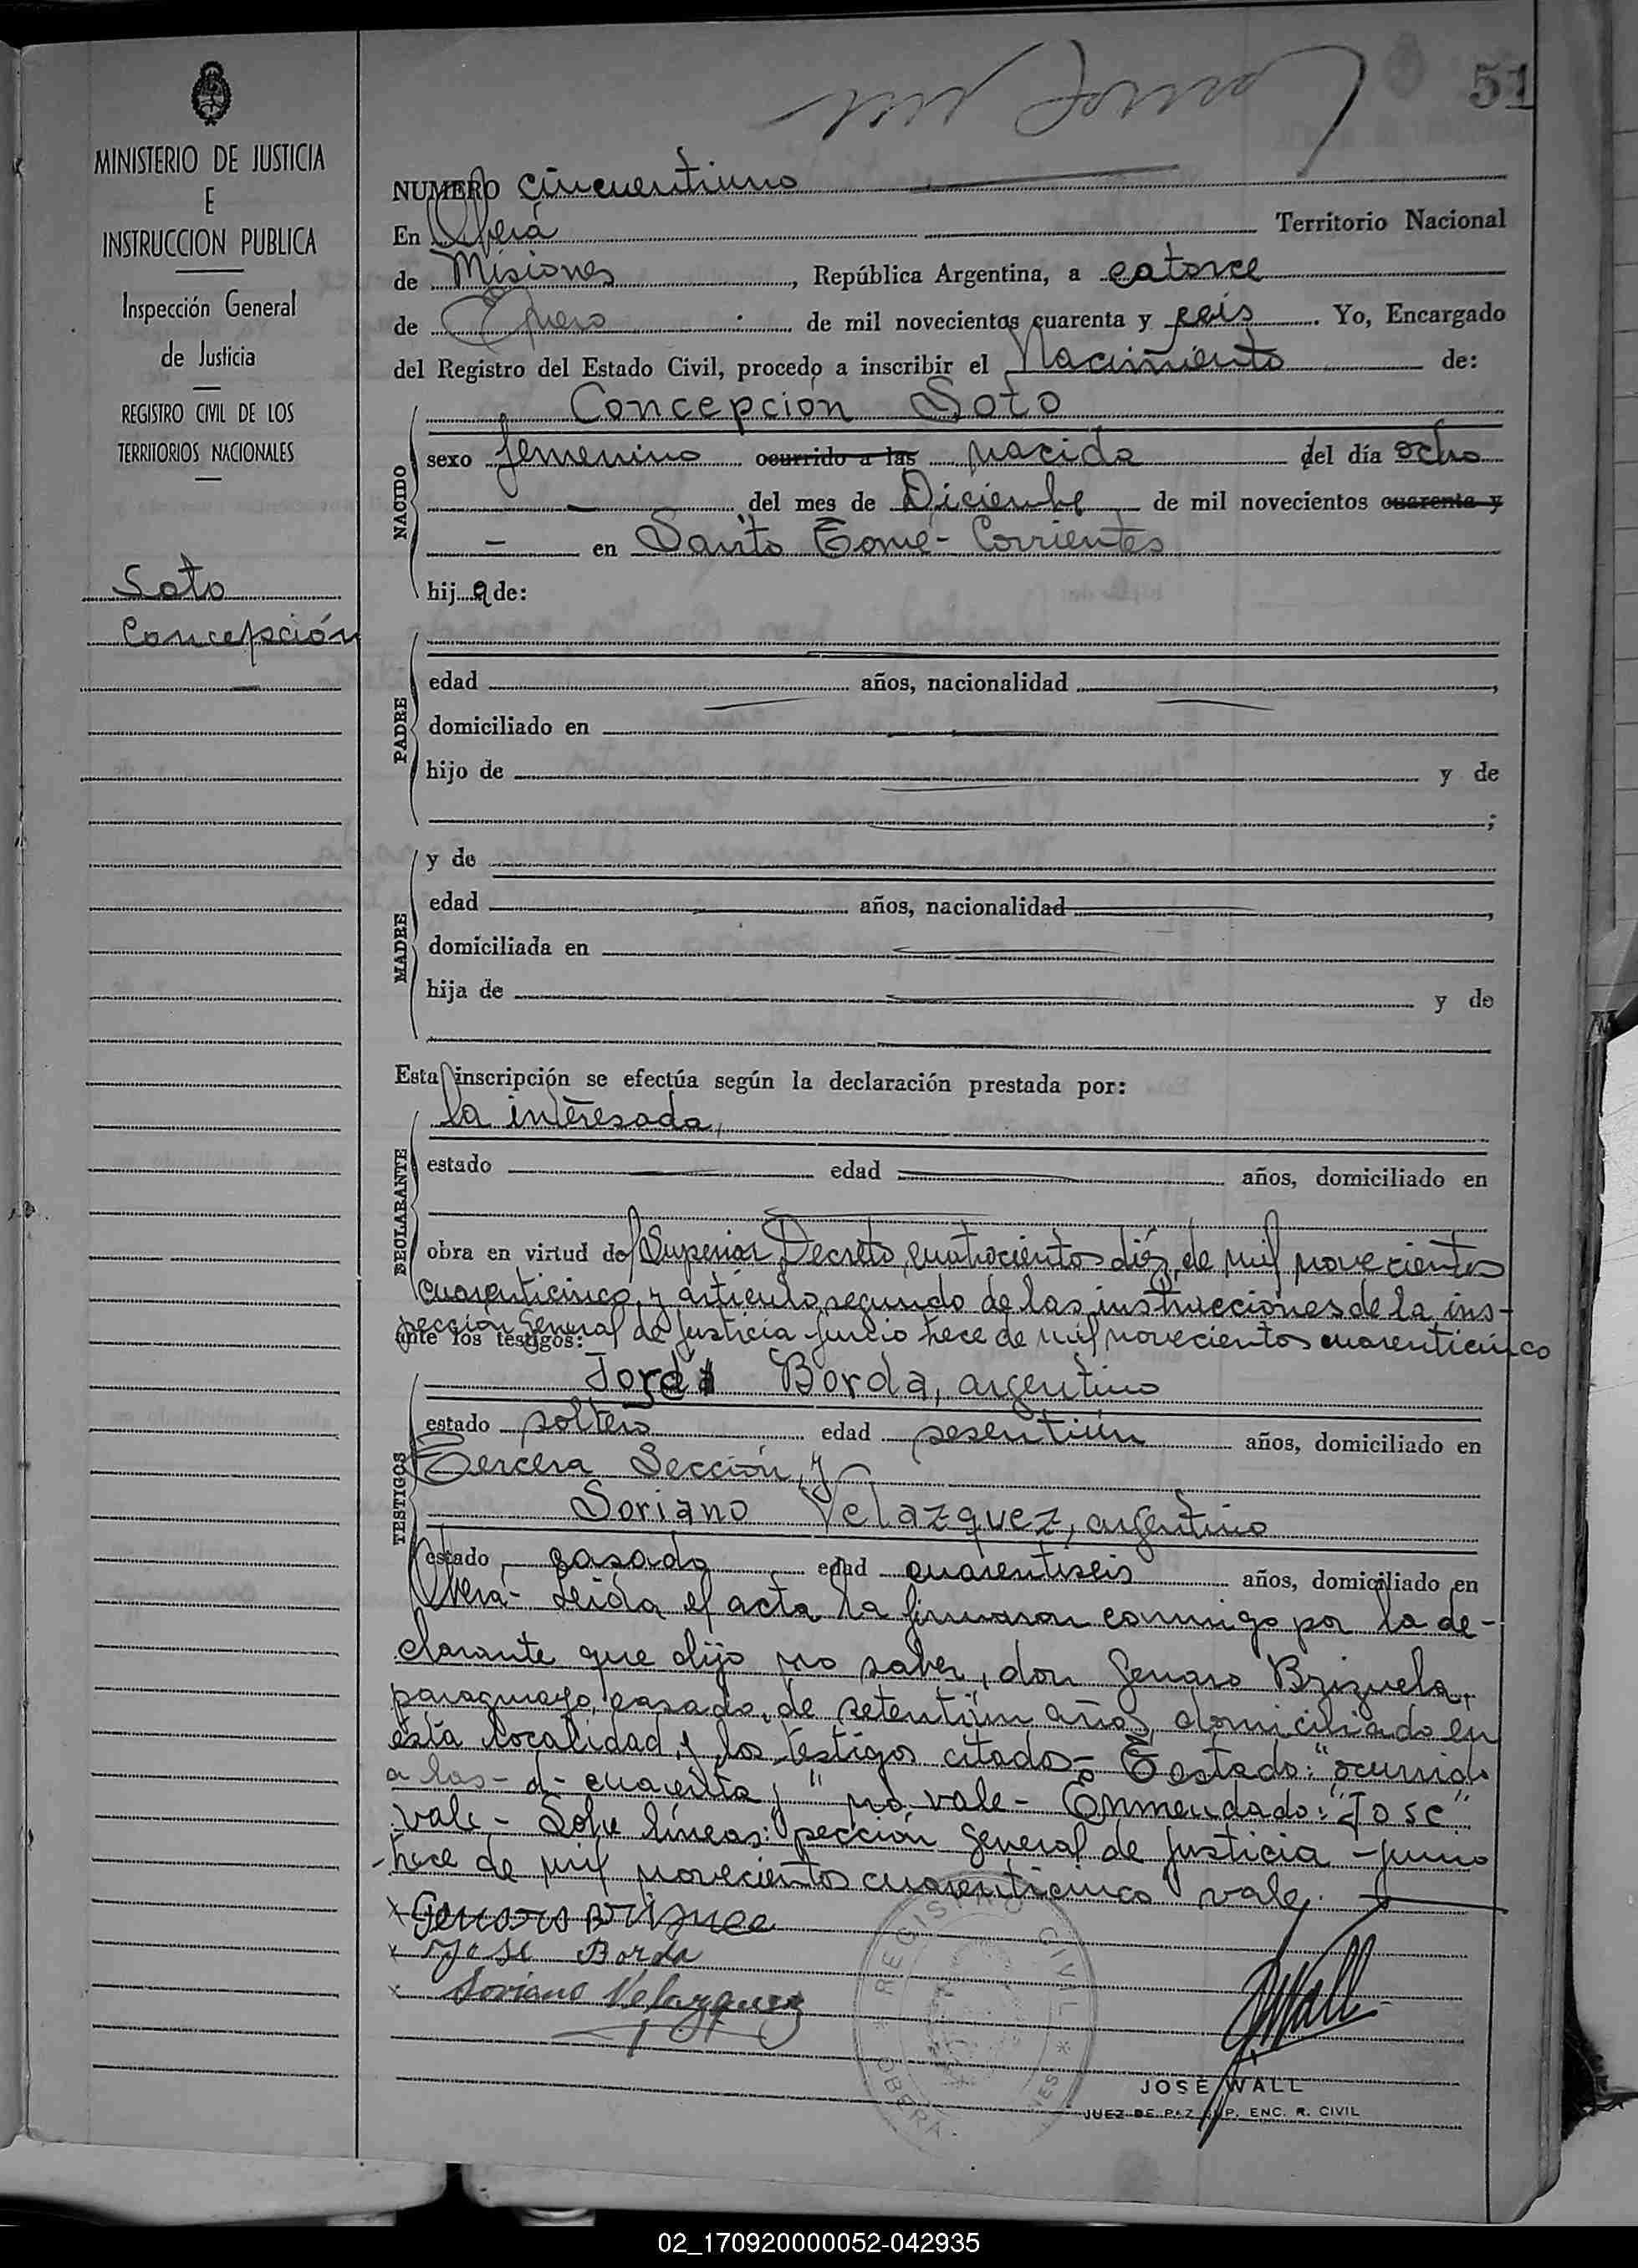 51
MINISTERIO DE JUSTICIA
E
INSTRUCCION PUBLICA
Inspección General
de Justicia
REGISTRO CIVIL DE LOS
TERRITORIOS NACIONALES
Soto
Concepción
NUMERO cincuentiuno
En Oberá Territorio Nacional
de Misiones, República Argentina, a catorce
de Enero de mil novecientos cuarenta y seis. Yo, Encargado
del Registro del Estado Civil, procedo a inscribir el Nacimiento de:
Concepción Soto
NACIDO
sexo femenino ocurrido a las nacida del día ocho
del mes de Diciembre de mil novecientos cuarenta y
en Santo Tomé - Corrientes
hija de:
PADRE
edad años, nacionalidad ,
domiciliado en
hijo de y de
;
MADRE
y de
edad años, nacionalidad ,
domiciliada en
hija de y de
Esta inscripción se efectúa según la declaración prestada por:
DECLARANTE
la interesada,
estado edad años, domiciliado en
obra en virtud de Superior Decreto cuatrocientos diez, de mil novecientos
cuarenticinco, y artículo segundo de las instrucciones de la ins-
pección General de Justicia - junio trece de mil novecientos cuarenticinco
ante los testigos:
TESTIGOS
José Borda, argentino
estado soltero edad sesentiún años, domiciliado en
Tercera Sección, y
Soriano Velazquez, argentino
estado casado edad cuarentiseis años, domiciliado en
Oberá - Leída el acta la firmaron conmigo por la de-
clarante que dijo no saber, don Genaro Brizuela,
paraguayo, casado, de setentiún años, domiciliado en
esta localidad, y los testigos citados - Testado: "ocurrido
a las - d - cuarenta y" no vale - Enmendado: "José"
vale - Sobre líneas: "pección General de Justicia - junio
trece de mil novecientos cuarenticinco" vale.
x José Borda
x Soriano Velazquez
REGISTRO CIVIL
OBERÁ
JOSÉ WALL
JUEZ DE PAZ SUP. ENC. R. CIVIL
02_170920000052-042935